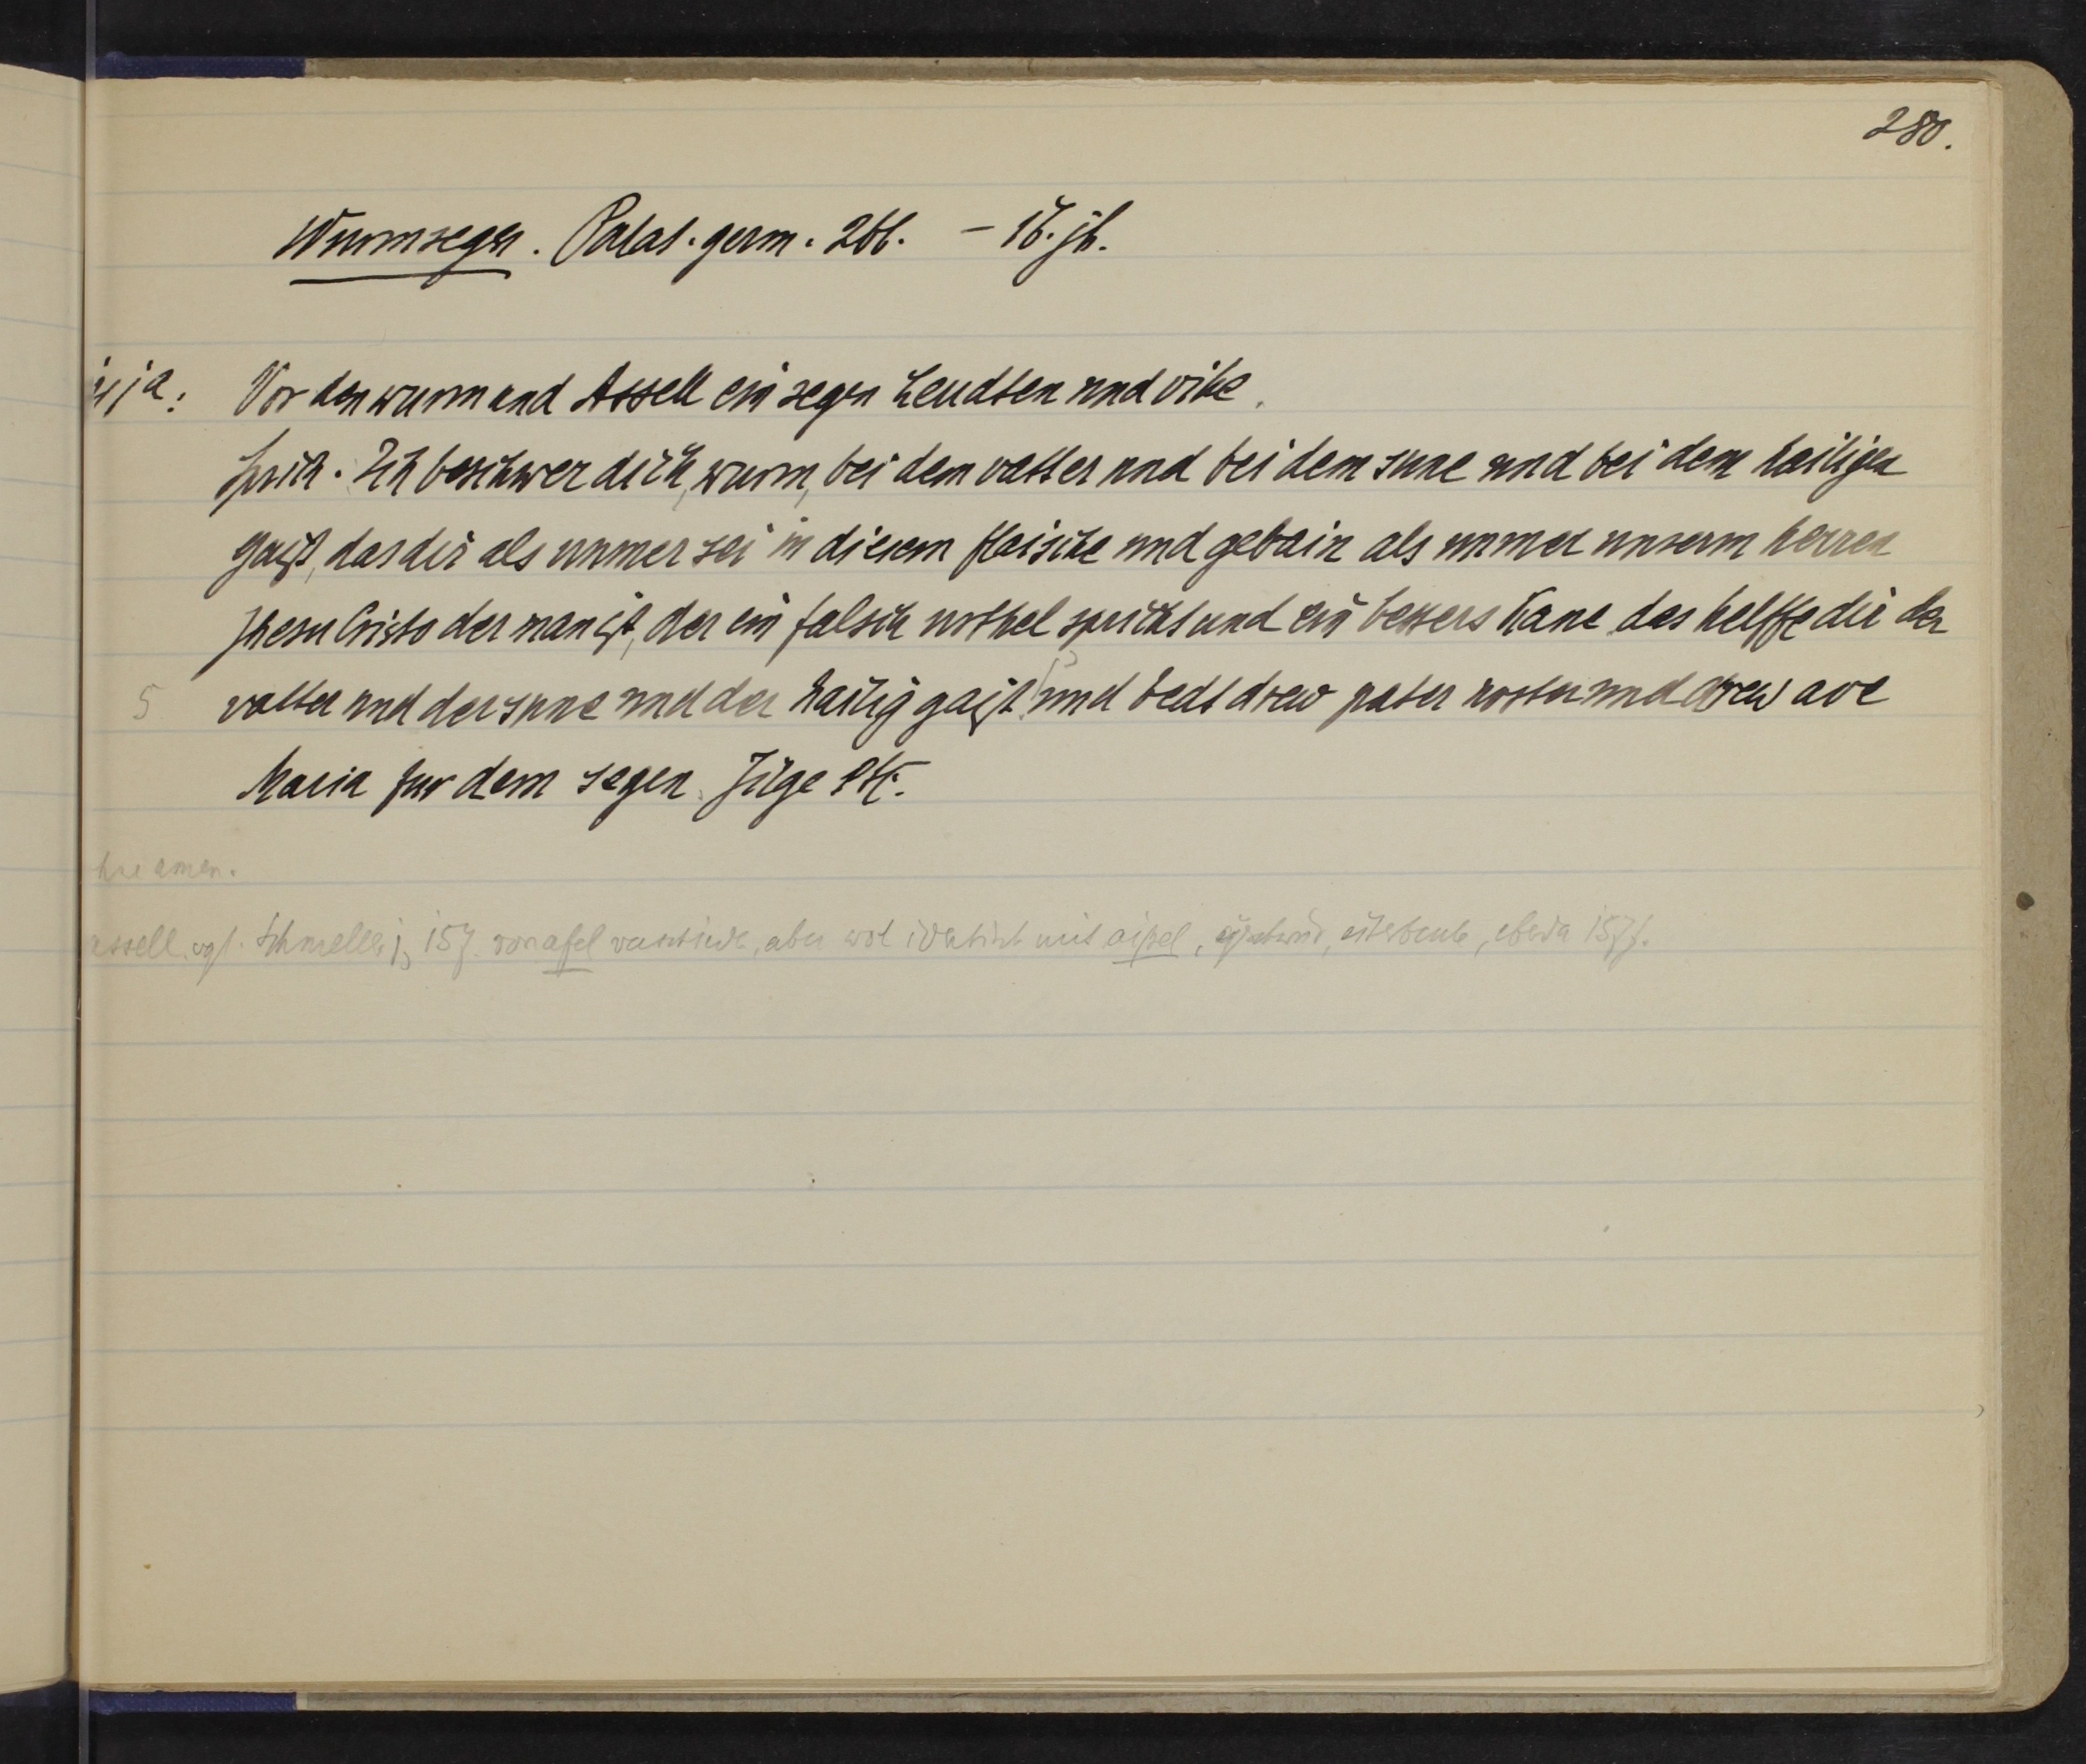 280.
Wurmsegen. Palat. germ. 266. – 16. jh.
Vor den wurm und Assell ein segen Leudten und vihe.
Sprich. Ich beschwer dich, wurm, bei dem vatter und bei dem sune und bei dem hailigen
gaist, das dir als unmer sei in diesem flaische und gebain als unmer unserm herren
Jhesu Cristo der man ist, der ein falsch urthel spricht und ein bessers kane das helffe dir der
5 vatter und der sune und der hailig gaist und bedt drew pater noster und drew ave
Maria fur dem segen.
amen.
assell. vgl. Schmeller 1, 157 von asel verschieden, aber wol identisch mit aißel, eiterbeule, ebda 157f.